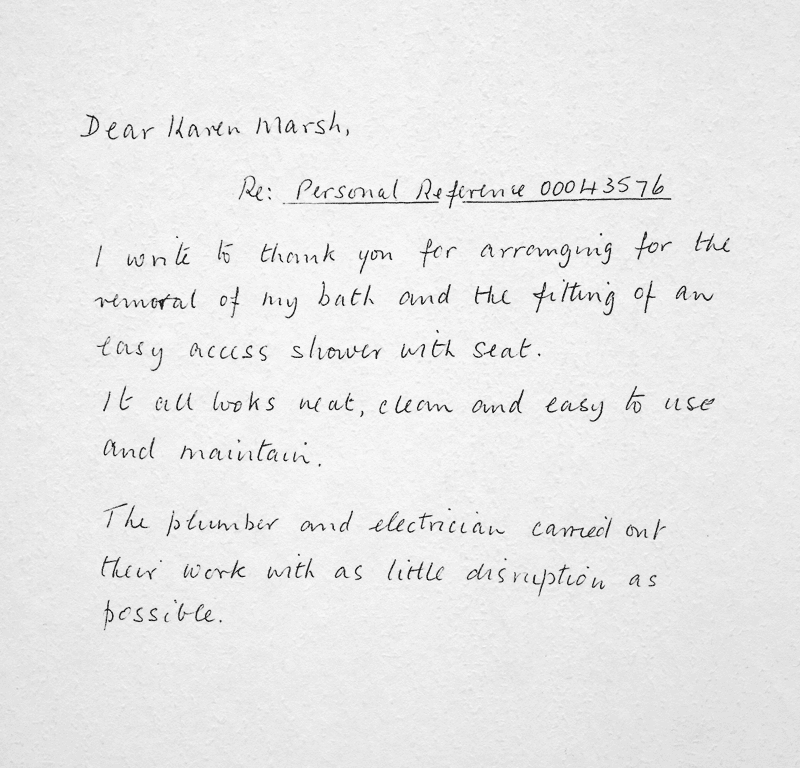 Dear Karen Marsh,
Re: Personal Reference 00043576
I write to thank you for arranging for the
removal of my bath and the fitting of an
easy access shower with seat.
It all looks neat, clean and easy to use
and maintain.
The plumber and electrician carried out
their work with as little disruption as
possible.